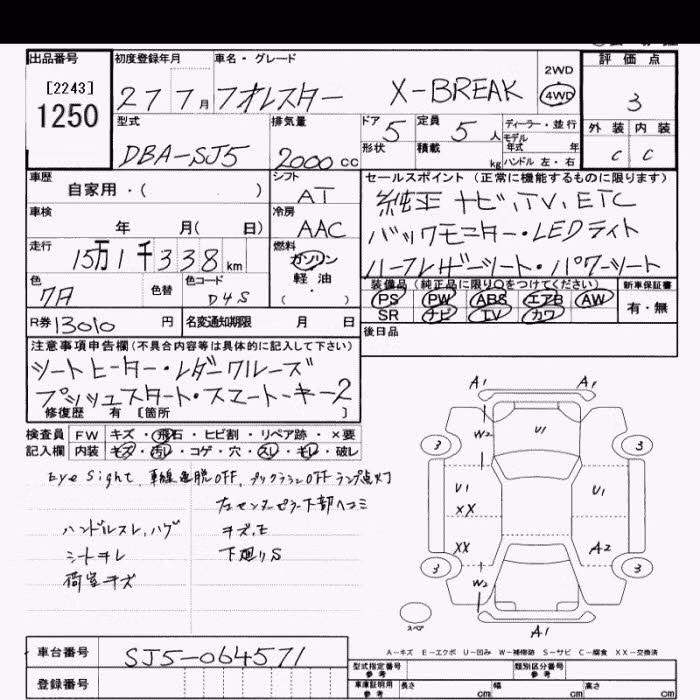 出品番号 初度登録年月 車名・グレード 評価点
[2243]
1250
27 7月 フオレスター X-BREAK 2WD 4WD 3
型式 排気量 ドア 定員 ディーラー・並行 外装 内装
DBA-SJ5 2000cc 5 5人 モデル年式 年 C C
形状 積載 kg ハンドル 左・右
車歴 シフト セールスポイント(正常に機能するものに限ります)
自家用・( ) AT 純正ナビ、TV、ETC
車検 冷房 バックモニター・LEDライト
年 月( 日) AAC ハーフレザーシート・パワーシート
走行 燃料
15万1千338km ガソリン
軽油
・( )
装備品(純正品に限り○をつけてください) 新車保証書
色 色替 色コード PS PW ABS エアB AW 有・無
7A D4S SR ナビ TV カワ
R券 13010円 名変通知期限 月 日 後日品
注意事項申告欄(不具合内容等は具体的に記入して下さい)
シートヒーター・レダークルーズ
プッシュスタート・スマートーキー2
修復歴 有 [箇所 ]
検査員 FW キズ・飛石・ヒビ割・リペア跡・×要
記入欄 内装 キズ・汚レ・コゲ・穴・スレ・キレ・破レ
Eye Sight、車線逸脱OFF、プリクラッシュOFFランプ点灯
左センターピラー下部ヘコミ
ハンドルスレ、ハゲ
シートキレ 下廻りS
荷室キズ
A1 A1
W2 U1
3 3
U1 U1
XX
XX A2
3 3
W2
スペア A1
A-キズ E-エクボ U-凹み W-補修跡 S-サビ C-腐食 XX-交換済
車台番号 SJ5-064571
型式指定番号 参考 類別区分番号 参考
登録番号 車庫証明用 参考 長さ cm 幅 cm 高さ cm